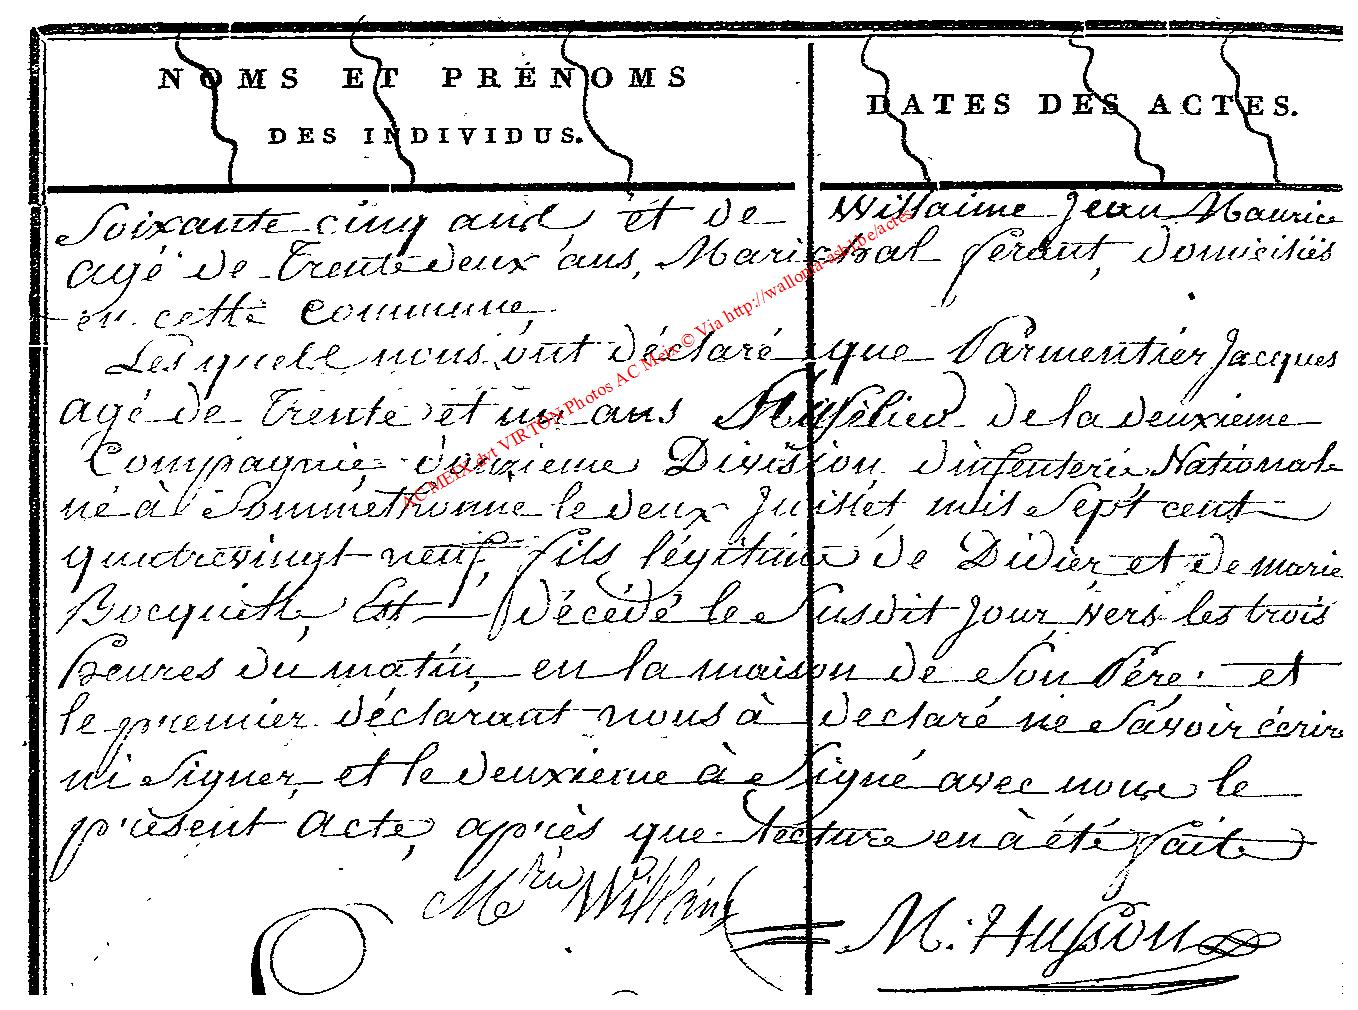 NOMS ET PRÉNOMS
DES INDIVIDUS.
DATES DES ACTES.
Soixante cinq ans, et de Willaime Jean Maurice
agé de Trente deux ans, Marichal ferant, domiciliés
en cette commune,
Les quels nous ont déclaré que Parmentier Jacques
agé de Trente et un ans fusélier de la deuxieme
Compagnie, douzieme Division, dinfenterie Nationale
né à Sommethonne le deux Juillet mil Sept cent
quatrevingt neuf, fils légitime de Didier et de marie
Bocquill, Est décédé le Susdit Jour, vers les trois
heures du matin, en la maison de Son Pére: et
le premier déclarant nous à declaré ne Savoir écrire
ni Signer, et le deuxieme à Signé avec nous le
présent Acte, après que lecture en à été faite
M. Husson
AC MEIX dvt VIRTON Photos AC Meix © Via http://wallonia-asbl.be/actes